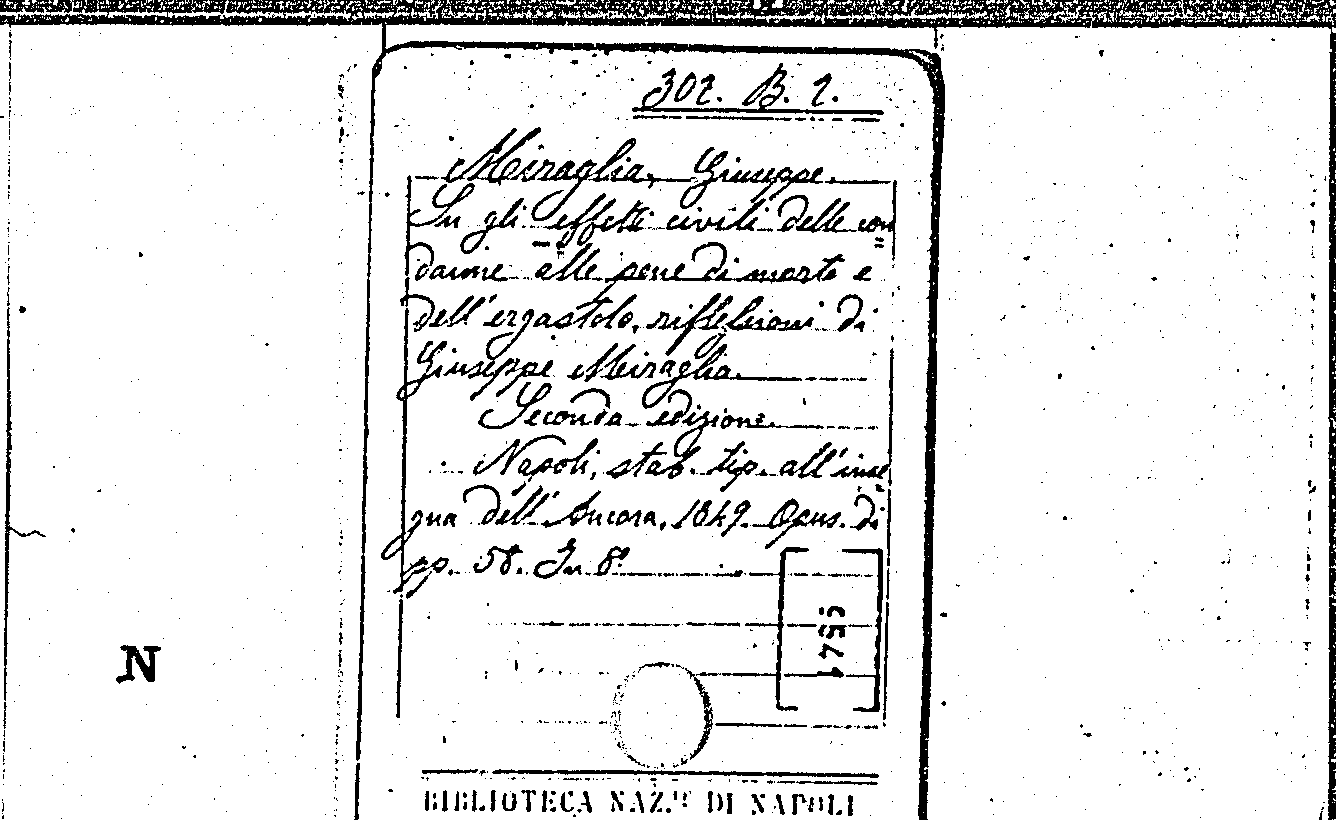 302. B. 2.
Miraglia, Giuseppe.
Su gli effetti civili delle con=
danne alle pene di morte e
dell'ergastolo, riflessioni di
Giuseppe Miraglia.
Seconda edizione.
Napoli, stab. tip. all'inse=
gna dell'Ancora, 1849. Opus. di
pp. 58. In 8º
N
BIBLIOTECA NAZ.LE DI NAPOLI